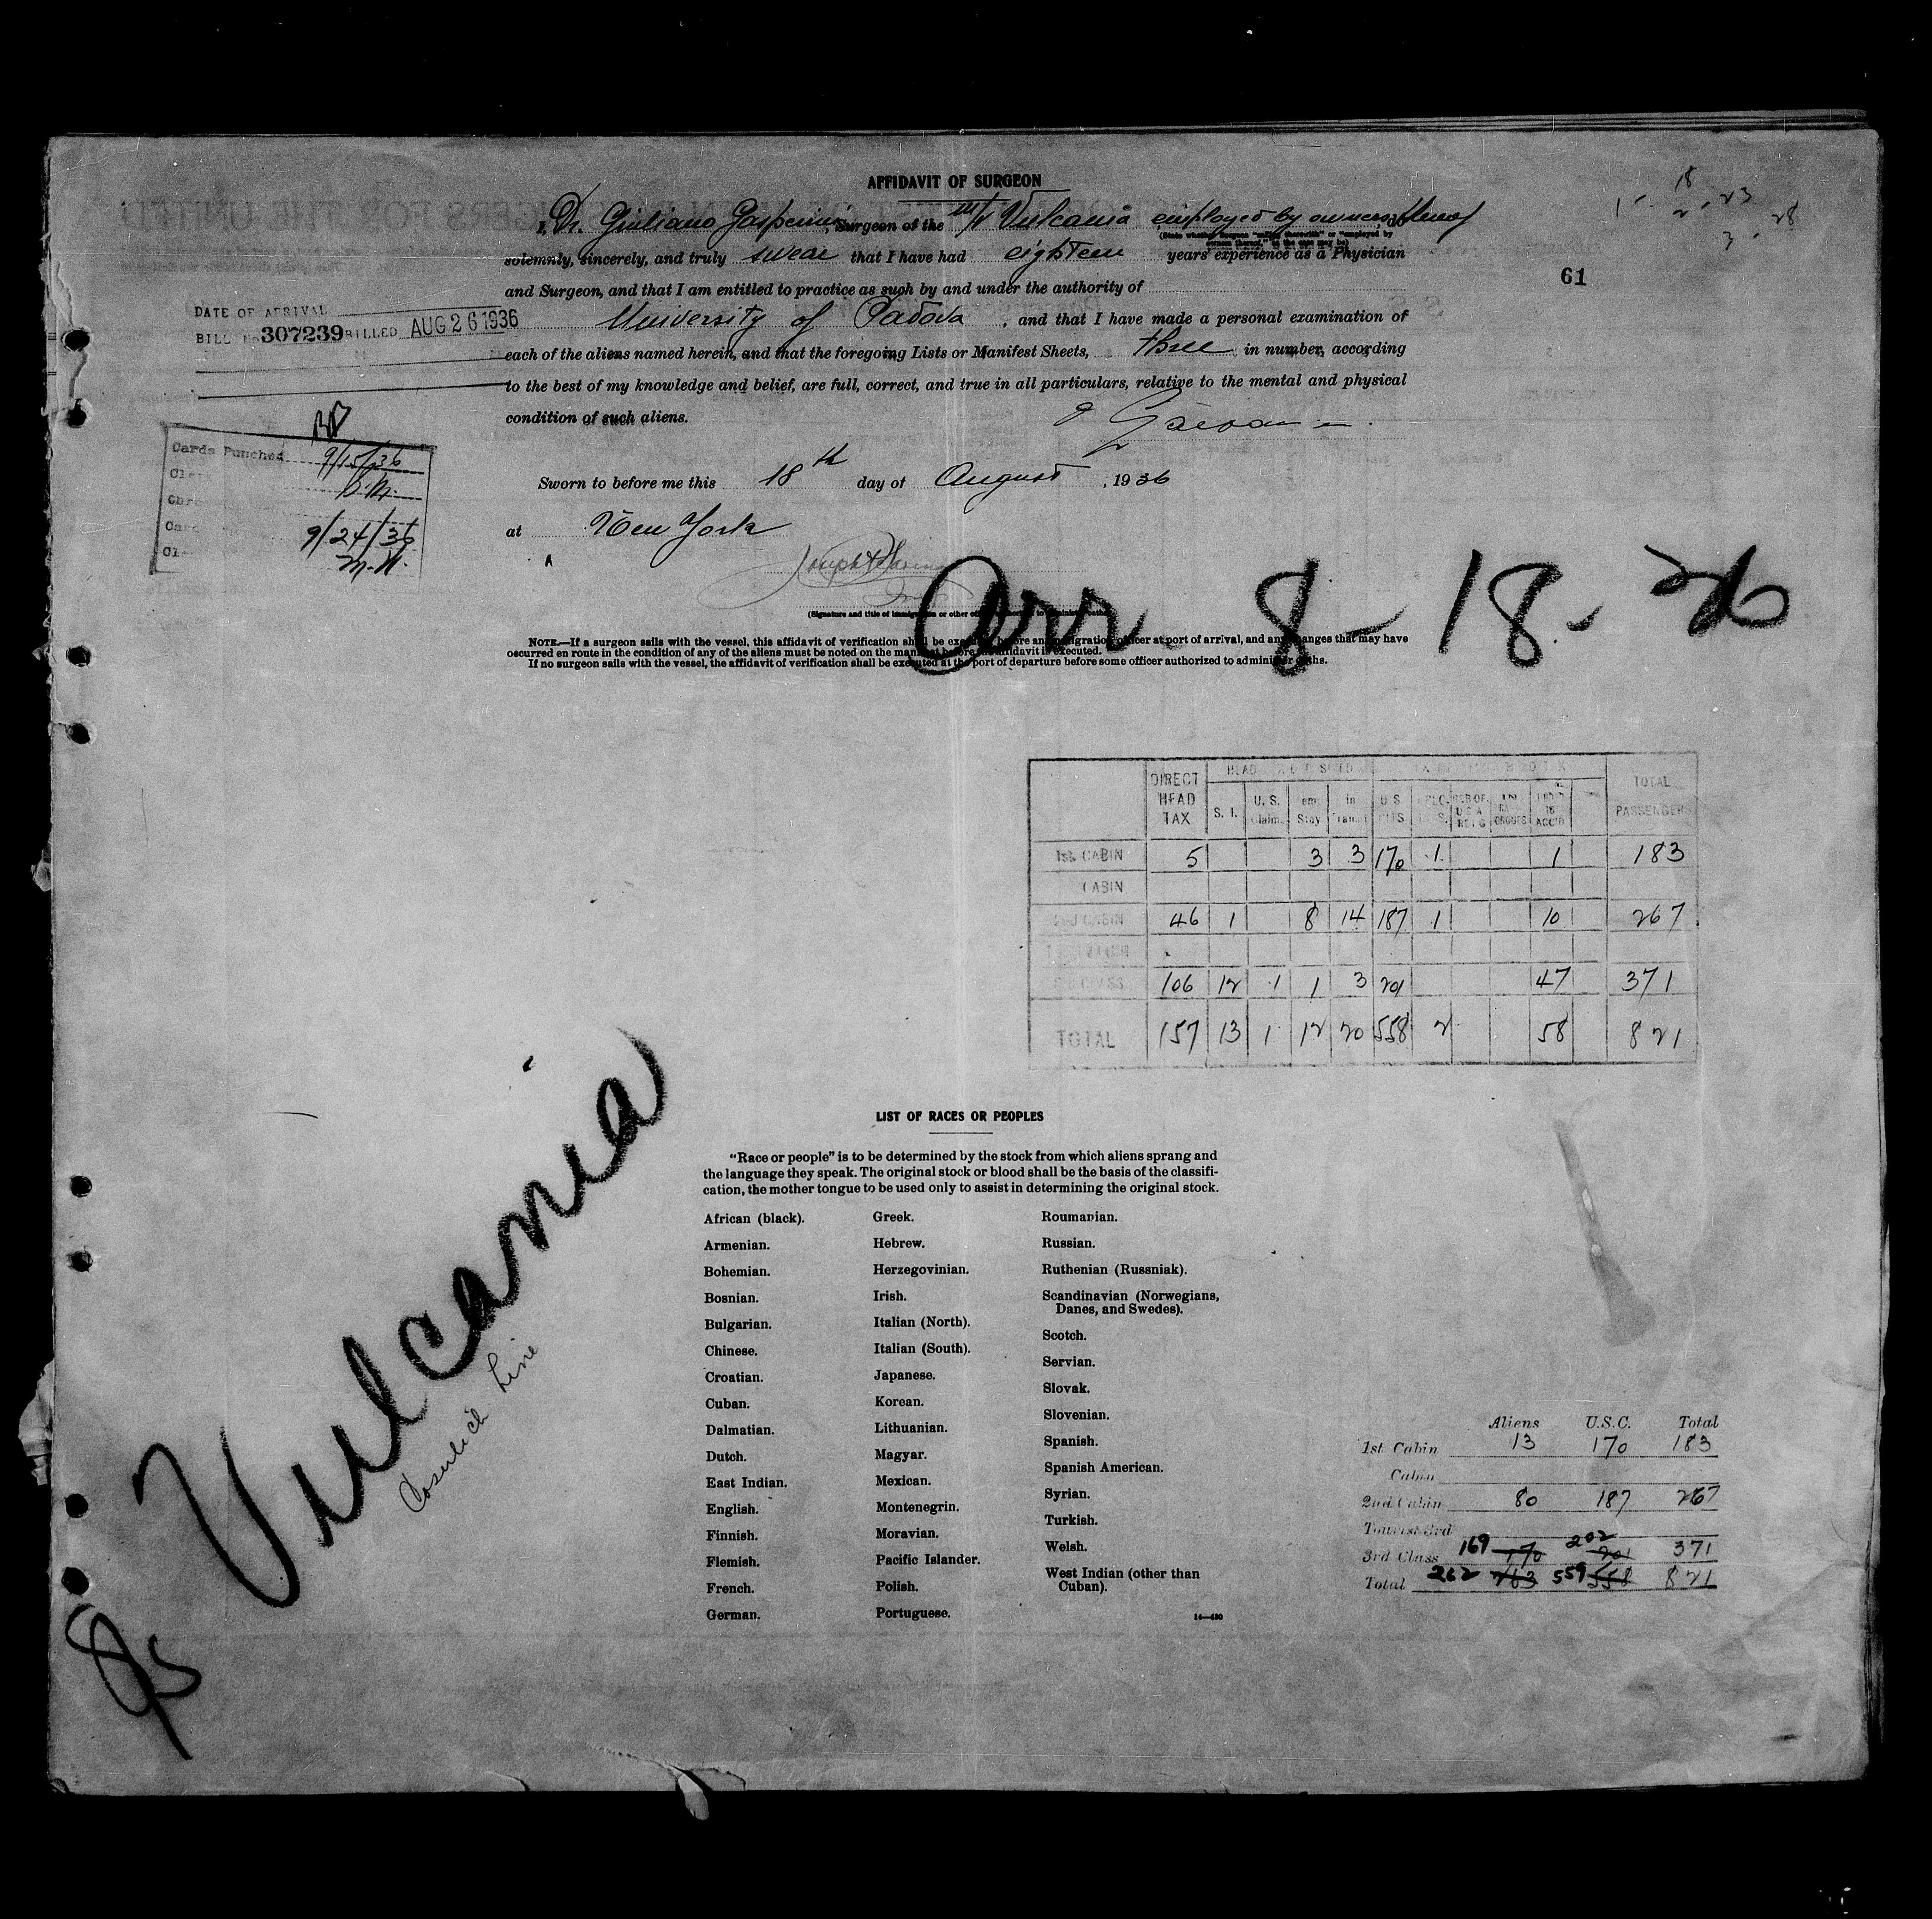 AFFIDAVIT OF SURGEON
I, Dr. Giuliano Gasperini, Surgeon of the M/V Vulcania employed by owners thereof, do
(State whether Surgeon "sailing therewith" or "employed by
owners thereof," as the case may be)
solemnly, sincerely, and truly swear that I have had eighteen years' experience as a Physician
and Surgeon, and that I am entitled to practice as such by and under the authority of
University of Padova, and that I have made a personal examination of
each of the aliens named herein, and that the foregoing Lists or Manifest Sheets, three in number, according
to the best of my knowledge and belief, are full, correct, and true in all particulars, relative to the mental and physical
condition of such aliens.
Sworn to before me this 18th day of August, 1936
at New York
(Signature and title of immigration or other officer authorized to administer oaths)
NOTE.—If a surgeon sails with the vessel, this affidavit of verification shall be executed before an immigration officer at port of arrival, and any changes that may have
occurred en route in the condition of any of the aliens must be noted on the manifest before the affidavit is executed.
If no surgeon sails with the vessel, the affidavit of verification shall be executed at the port of departure before some officer authorized to administer oaths.
61
18
23
28
DATE OF ARRIVAL
BILL No 307239 BILLED AUG 26 1936
Cards Punched 9/15/36
9/24/36
M.N.
Arr 8-18-36
DIRECT HEAD TAX S. I. U. S. Claim. Stay in Transit U S TOTAL PASSENGERS
1st CABIN 5 3 3 170 1 1 183
CABIN
2nd CABIN 46 1 8 14 187 1 10 267
106 12 1 1 3 201 47 371
TOTAL 157 13 1 12 20 558 2 58 821
Vulcania
Cosulich Line
LIST OF RACES OR PEOPLES
"Race or people" is to be determined by the stock from which aliens sprang and
the language they speak. The original stock or blood shall be the basis of the classifi-
cation, the mother tongue to be used only to assist in determining the original stock.
African (black).
Armenian.
Bohemian.
Bosnian.
Bulgarian.
Chinese.
Croatian.
Cuban.
Dalmatian.
Dutch.
East Indian.
English.
Finnish.
Flemish.
French.
German.
Greek.
Hebrew.
Herzegovinian.
Irish.
Italian (North).
Italian (South).
Japanese.
Korean.
Lithuanian.
Magyar.
Mexican.
Montenegrin.
Moravian.
Pacific Islander.
Polish.
Portuguese.
Roumanian.
Russian.
Ruthenian (Russniak).
Scandinavian (Norwegians,
Danes, and Swedes).
Scotch.
Servian.
Slovak.
Slovenian.
Spanish.
Spanish American.
Syrian.
Turkish.
Welsh.
West Indian (other than
Cuban).
14—430
Aliens U.S.C. Total
1st Cabin 13 170 183
Cabin
2nd Cabin 80 187 267
Tourist 3rd
3rd Class 169 170 202 201 371
Total 262 263 559 558 821